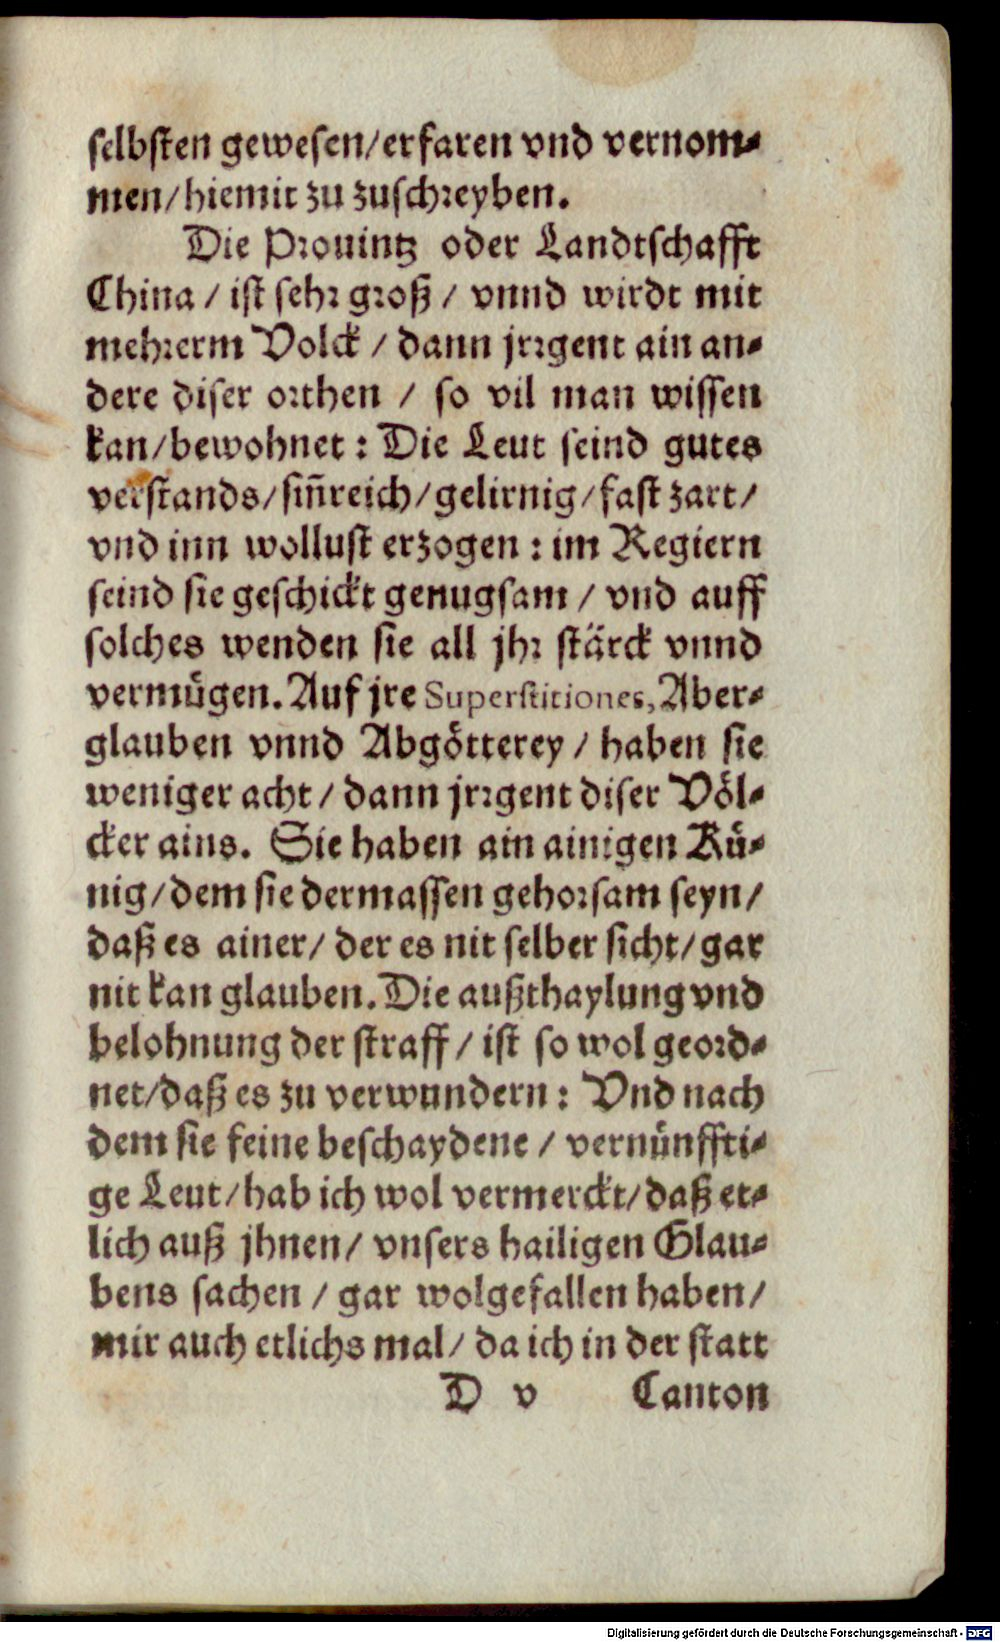 selbsten gewesen/erfaren vnd vernom⸗
men/hiemit zu zuschreyben.
Die Prouintz oder Landtschafft
China / ist sehr groß / vnnd wirdt mit
mehrerm Volck / dann jrrgent ain an⸗
dere diser orthen / so vil man wissen
kan/bewohnet : Die Leut seind gutes
verstands/sin̄reich/gelirnig/fast zart/
vnd inn wollust erzogen : im Regiern
seind sie geschickt genugsam / vnd auff
solches wenden sie all jhr stärck vnnd
vermügen. Auf jre Superstitiones, Aber⸗
glauben vnnd Abgötterey / haben sie
weniger acht / dann jrrgent diser Völ⸗
cker ains. Sie haben ain ainigen Kü⸗
nig/dem sie dermassen gehorsam seyn/
daß es ainer/ der es nit selber sicht/ gar
nit kan glauben. Die außthaylung vnd
belohnung der straff / ist so wol geord⸗
net/daß es zu verwundern : Vnd nach
dem sie feine beschaydene / vernünffti⸗
ge Leut/hab ich wol vermerckt/daß et⸗
lich auß jhnen/ vnsers hailigen Glau⸗
bens sachen / gar wolgefallen haben/
mir auch etlichs mal/ da ich in der statt
D v Canton
Digitalisierung gefördert durch die Deutsche Forschungsgemeinschaft - DFG